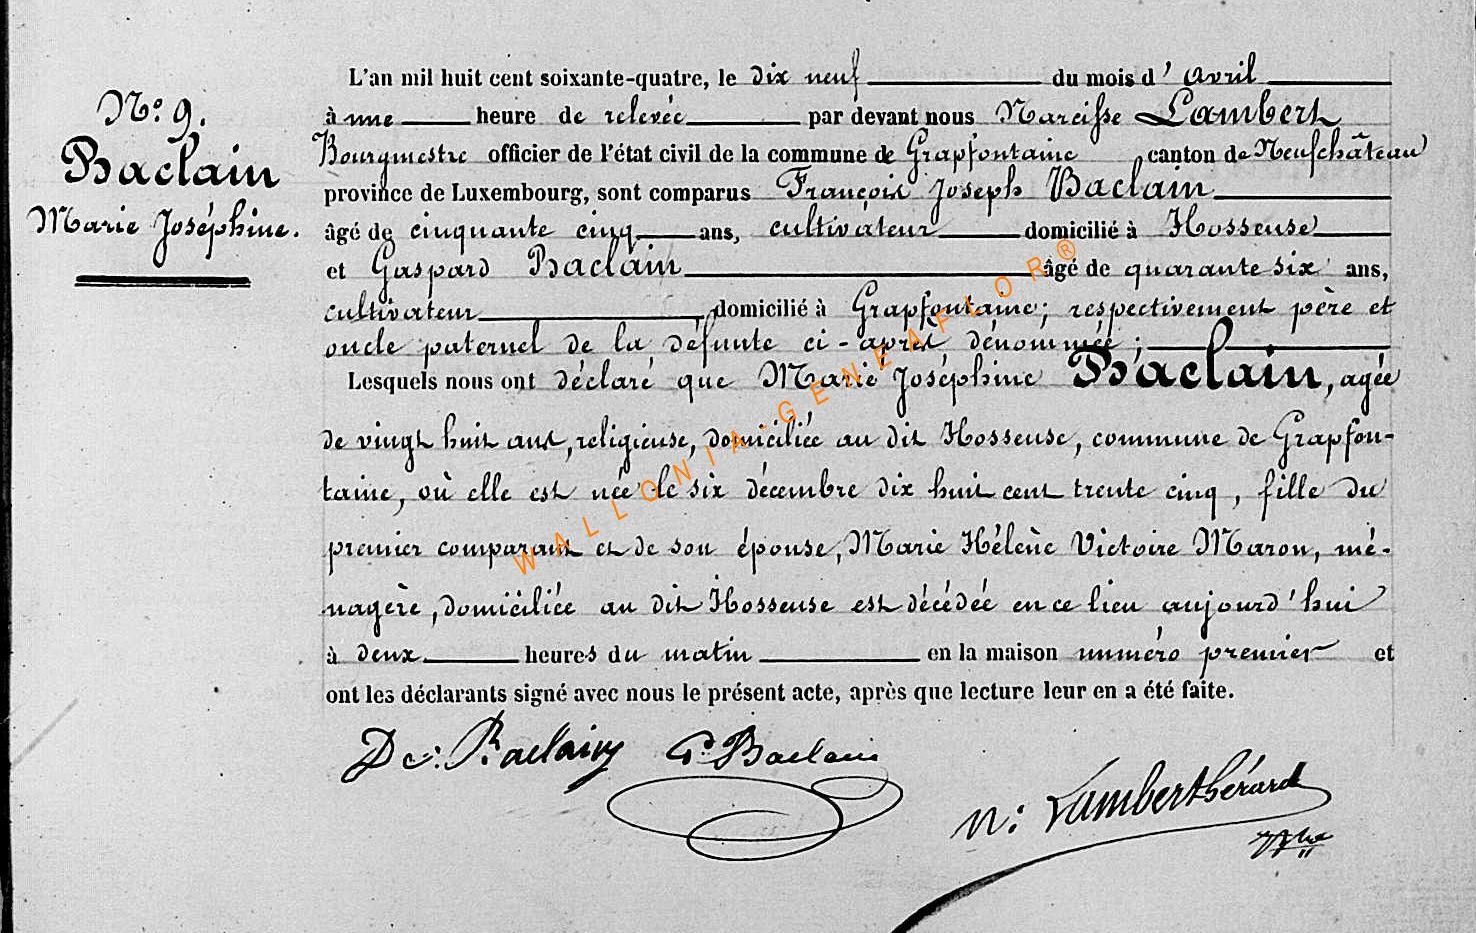 N.° 9.
Baclain
Marie Joséphine.
L'an mil huit cent soixante-quatre, le dix neuf du mois d'avril
à une heure de relevée par devant nous Narcisse Lambert
Bourgmestre officier de l'état civil de la commune de Grapfontaine canton de Neufchâteau
province de Luxembourg, sont comparus François Joseph Baclain
âgé de cinquante cinq ans, cultivateur domicilié à Hosseuse
et Gaspard Baclain âgé de quarante six ans,
cultivateur domicilié à Grapfontaine; respectivement père et
oncle paternel de la défunte ci-après dénommée;
Lesquels nous ont déclaré que Marie Joséphine Baclain, agée
de vingt huit ans, religieuse, domiciliée au dit Hosseuse, commune de Grapfon-
taine, où elle est née le six décembre dix huit cent trente cinq, fille du
premier comparant et de son épouse, Marie Hélène Victoire Maron, mé-
nagère, domiciliée au dit Hosseuse est décédée en ce lieu aujourd'hui
à deux heures du matin en la maison numéro premier et
ont les déclarants signé avec nous le présent acte, après que lecture leur en a été faite.
Baclain G. Baclain
N: Lambert Gérard
WALLONIA-GENEAFLOR®